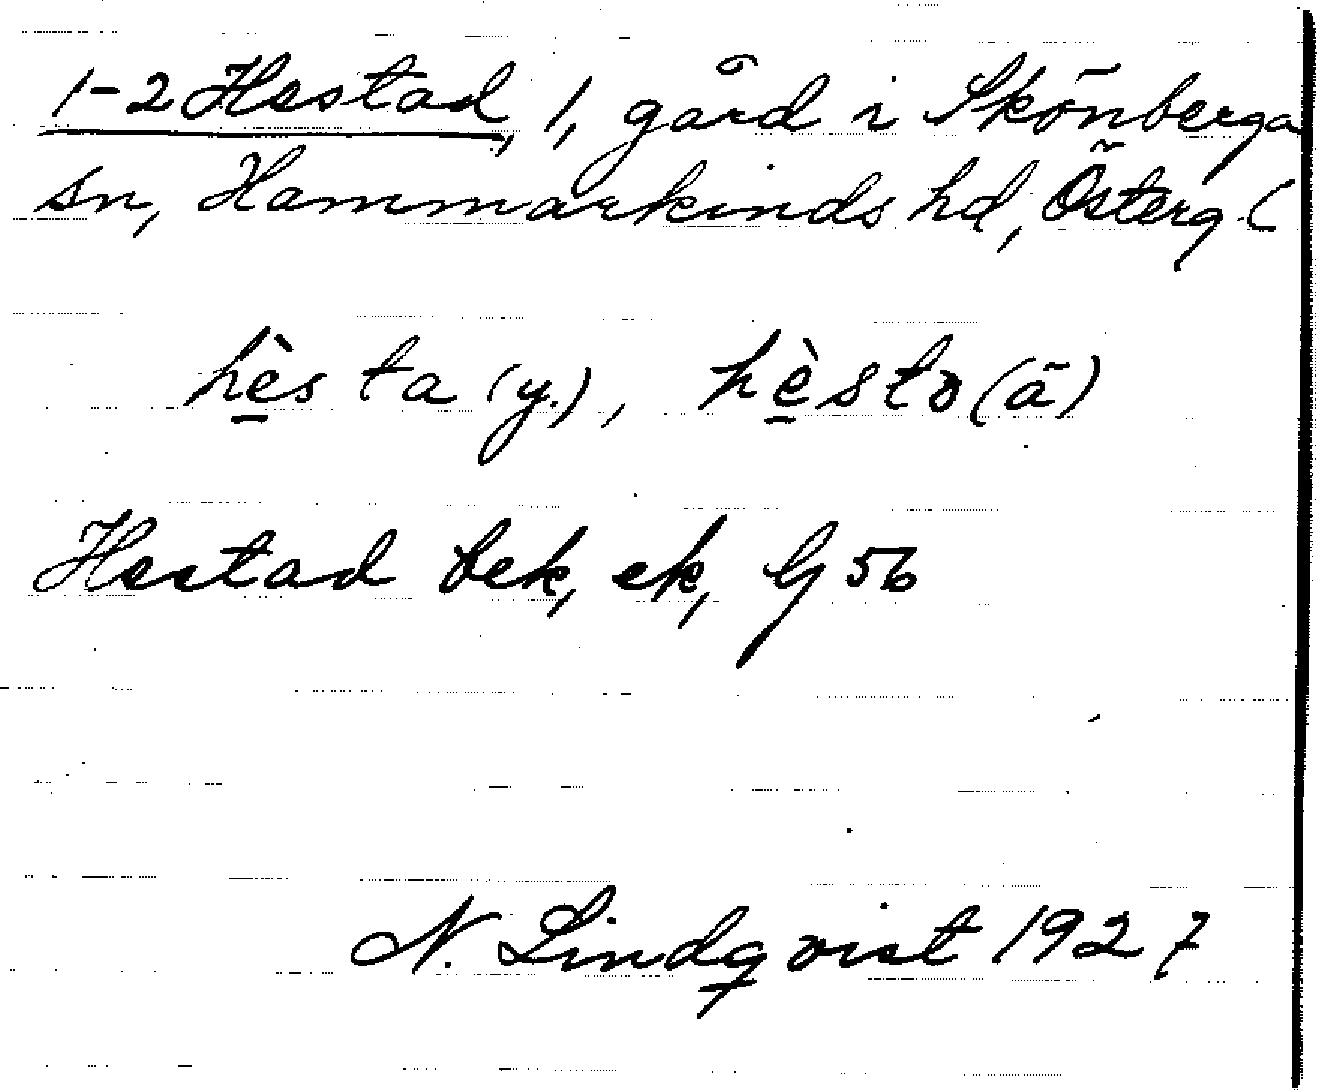 1-2 Hestad, 1, gård i Skönberga
sn, Hammarkinds hd, Österg.
hès̱ta (y.), hès̱to (ä)
Hestad bek, ek, G 56
N. Lindqvist 1927